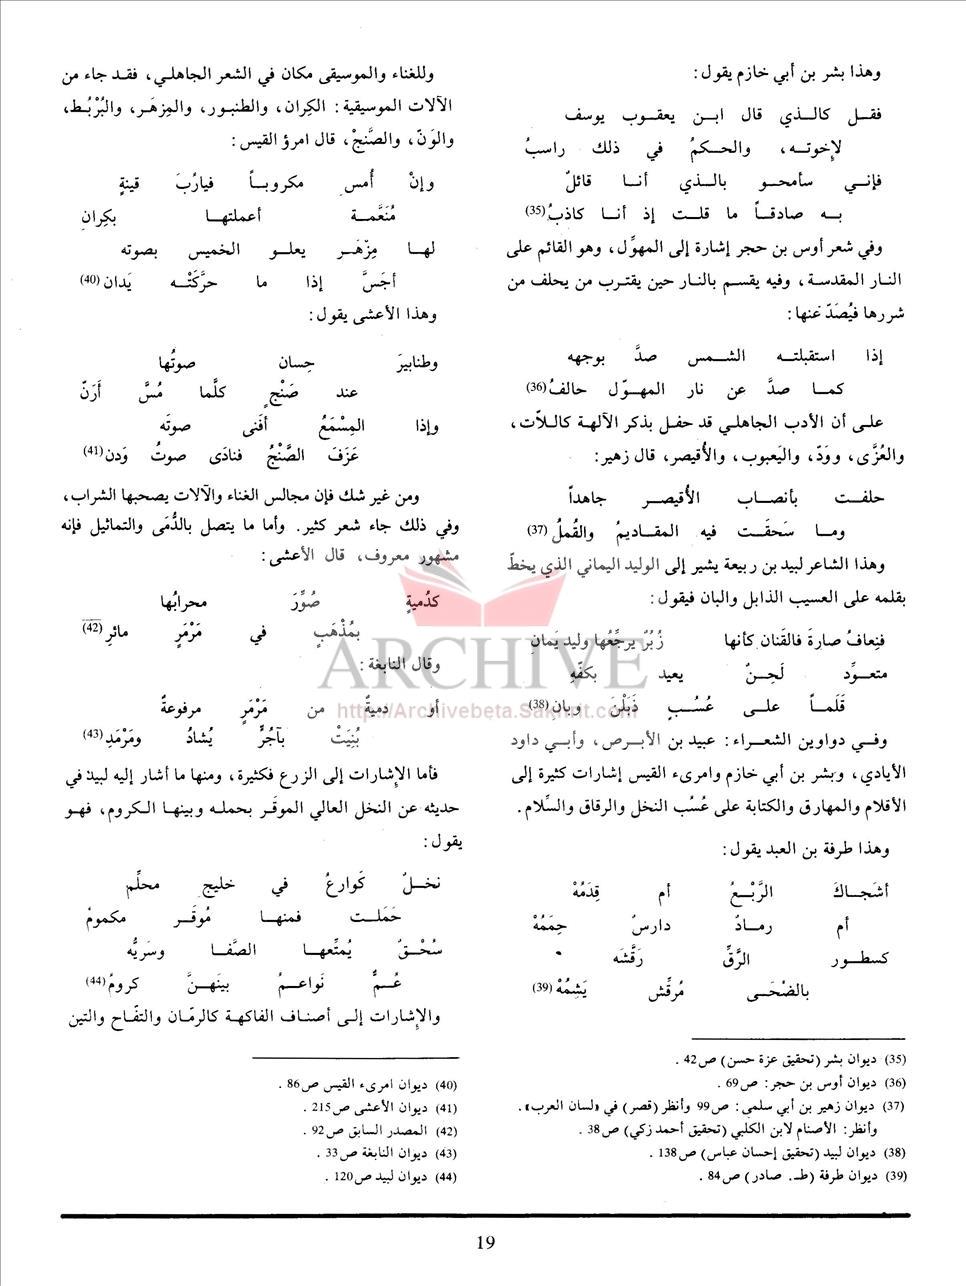 وهذا بشر بن أبي خازم يقول:
فقـل كالـذي قال ابـن يعقـوب يوسف
لإخوتـه، والحـكمُ في ذلك راسبُ
فإنـي سأمحـو بالـذي أنـا قائلٌ
بـه صادقـاً ما قلـت إذ أنـا كاذبُ (35)
وفي شعر أوس بن حجر إشارة إلى المهوِّل، وهو القائم على
النار المقدسة، وفيه يقسم بالنار حين يقترب من يحلف من
شررها فيُصَدّ عنها:
إذا استقبلتـه الشـمس صدَّ بوجهه
كمـا صدَّ عن نار المهـوّل حالفُ (36)
على أن الأدب الجاهلي قد حفل بذكر الآلهة كاللاّت،
والعُزَّى، وودّ، واليَعبوب، والأُقيصر، قال زهير:
حلفـت بأنصـاب الأُقيصـر جاهداً
ومـا سَحقَـت فيه المقاديمُ والقُملُ (37)
وهذا الشاعر لبيد بن ربيعة يشير إلى الوليد اليماني الذي يخطّ
بقلمه على العسيب الذابل والبان فيقول:
فنِعافُ صارةَ فالقَنان كأنها زُبُرٌ يرجِّعُها وليد يَمانِ
متعـوِّد لَحِـنٌ يعيد بكفّهِ
قَلَمـاً علـى عُسُـبٍ ذَبَلْنَ وبان (38)
وفـي دواوين الشعـراء: عبيد بن الأبـرص، وأبـي داود
الأيادي، وبشر بن أبي خازم وامرىء القيس إشارات كثيرة إلى
الأقلام والمهارق والكتابة على عُسُب النخل والرقاق والسِّلام.
وهذا طرفة بن العبد يقول:
أشجـاكَ الرَّبْـعُ أم قِدَمُهْ
أم رمـادٌ دارسٌ حِمَمُهْ
كسطـور الرَّقِّ رَقَّشَه
بالضُحَـى مُرقّش يَشِمُهْ (39)
(35) ديوان بشر (تحقيق عزة حسن) ص42.
(36) ديوان أوس بن حجر: ص69.
(37) ديوان زهير بن أبي سلمى: ص99 وأنظر (قصر) في «لسان العرب».
وأنظر: الأصنام لابن الكلبي (تحقيق أحمد زكي) ص38.
(38) ديوان لبيد (تحقيق إحسان عباس) ص138.
(39) ديوان طرفة (طـ. صادر) ص84.
وللغناء والموسيقى مكان في الشعر الجاهلي، فقد جاء من
الآلات الموسيقية: الكِران، والطنبور، والمِزهَر، والبُرْبُط،
والوَنّ، والصَّنجْ، قال امرؤ القيس:
وإنْ أُمس مكروبـاً فيارُبَ قينةٍ
مُنَعَّمـة أعملتهـا بكِرانِ
لهـا مِزْهَـر يعلـو الخميس بصوته
أجَشَّ إذا ما حرَّكَتْـه يَدان (40)
وهذا الأعشى يقول:
وطنابيرَ حِسان صوتُها
عند صَنْجٍ كلَّما مُسَّ أرَنّ
وإذا المِسْمَعُ أفَنى صوتَه
عَزَفَ الصَّنْجُ فنادَى صوتُ وَدن (41)
ومن غير شك فإن مجالس الغناء والآلات يصحبها الشراب،
وفي ذلك جاء شعر كثير. وأما ما يتصل بالدُّمَى والتماثيل فإنه
مشهور معروف، قال الأعشى:
كدُميةٍ صُوِّرَ محرابُها
بمُذْهَبٍ في مَرْمَرٍ مائرِ (42)
وقال النابغة:
أو دميةٌ من مَرْمَرٍ مرفوعةٌ
بُنِيَتْ بآجُرٍّ يُشادُ ومَرْمَدِ (43)
فأما الإشارات إلى الزرع فكثيرة، ومنها ما أشار إليه لبيد في
حديثه عن النخل العالي الموقَر بحمله وبينهـا الكروم، فهـو
يقول:
نخـلٌ كَوارعُ في خليج محلِّم
حَمَلـت فمنهـا مُوقَـر مكمومُ
سُحْـقٌ يُمتِّعهـا الصَّفـا وسَريُّه
عُـمٌّ نَواعـمُ بينَهـنَّ كرومُ (44)
والإشارات إلـى أصناف الفاكهـة كالرمّان والتفّاح والتين
(40) ديوان امرىء القيس ص86.
(41) ديوان الأعشى ص215.
(42) المصدر السابق ص92.
(43) ديوان النابغة ص33.
(44) ديوان لبيد ص120.
ARCHIVE
http://Archivebeta.Sakhrit.com
19